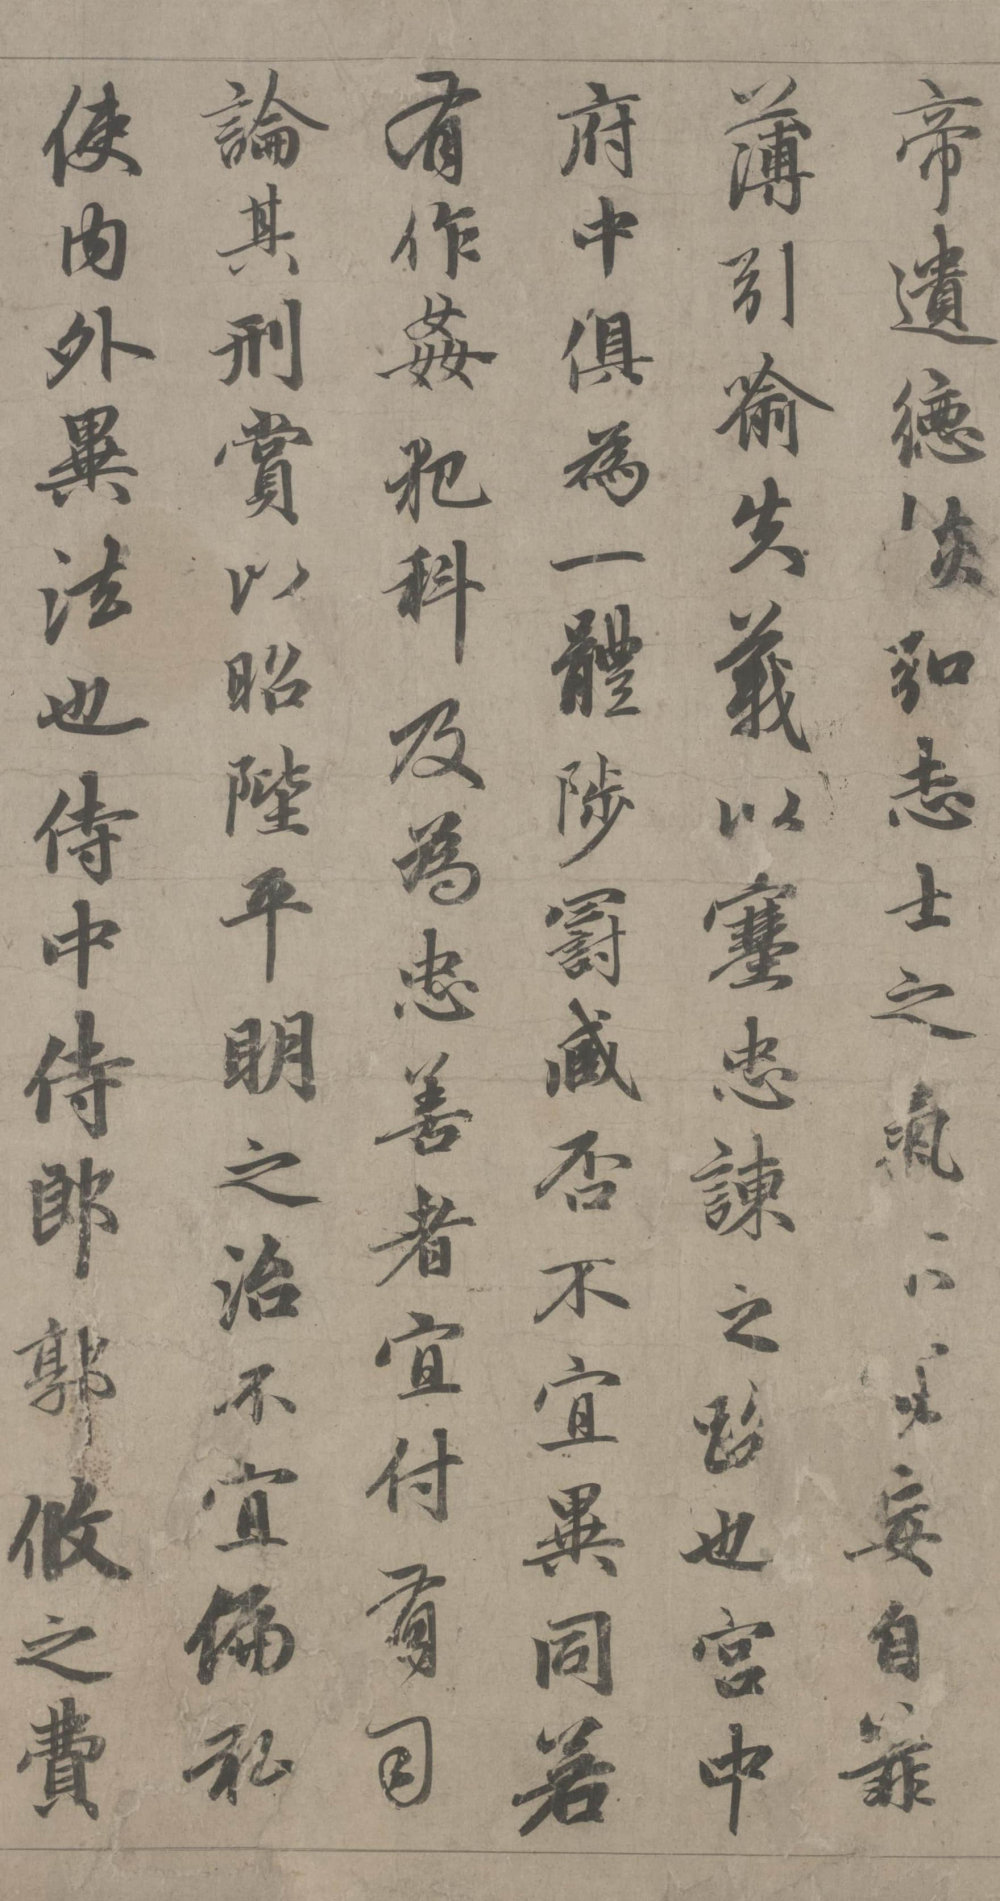 帝遺德恢弘志士之氣不宜妄自菲
薄引喻失義以塞忠諫之路也宮中
府中俱為一體陟罰臧否不宜異同若
有作姦犯科及為忠善者宜付有司
論其刑賞以昭陛平明之治不宜偏私
使內外異法也侍中侍郎郭攸之費